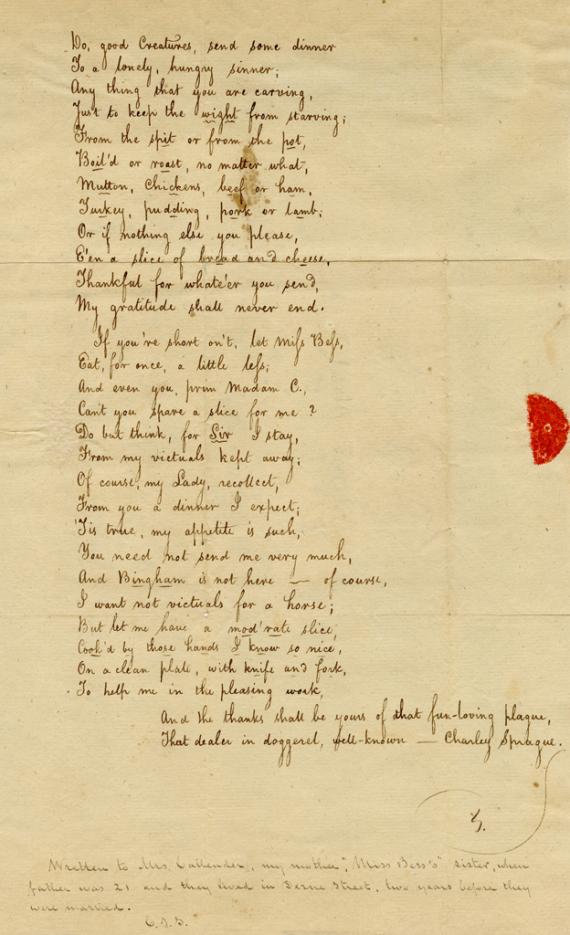 Do, good Creatures, send some dinner
To a lonely, hungry sinner;
Any thing that you are carving,
Just to keep the wight from starving;
From the spit or from the pot,
Boil'd or roast, no matter what,
Mutton, Chickens, beef or ham,
Turkey, pudding, pork or lamb;
Or if nothing else you please,
E'en a slice of bread and cheese,
Thankful for whate'er you send,
My gratitude shall never end.
If you're short on't, let Miſs Beſs,
Eat, for once, a little leſs;
And even you, prim Madam C.,
Can't you spare a slice for me?
Do but think, for Sir I stay,
From my victuals kept away;
Of course, my Lady, recollect,
From you a dinner I expect;
'Tis true, my appetite is such,
You need not send me very much,
And Bingham is not here — of course,
I want not victuals for a horse;
But let me have a mod'rate slice,
Cook'd by those hands I know so nice,
On a clean plate, with knife and fork,
To help me in the pleasing work,
And the thanks shall be yours of that fun-loving plague,
That dealer in doggerel, well-known — Charley Sprague.
S.
Written to Mrs. Callender, my mother, "Miss Bess's" sister, when
father was 21 and they lived in Derne Street, two years before they
were married.
C. J. S.